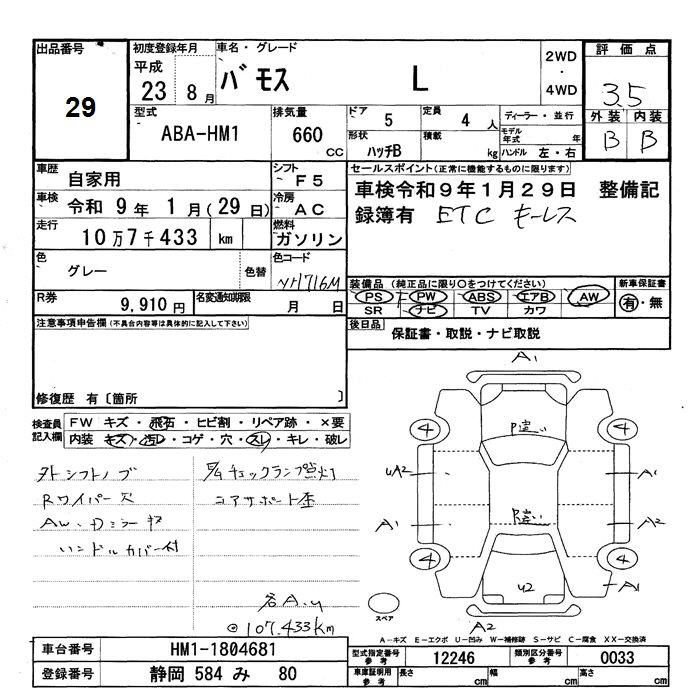 出品番号 初度登録年月 車名・グレード 2WD・4WD 評価点
29 平成 23 8月 バモス L 3.5
型式 ABA-HM1 排気量 660 cc
ドア 5 定員 4 人 ディーラー・並行
形状 ハッチB 積載 kg モデル年式 年
ハンドル 左・右
外装 内装
B B
車歴 自家用 シフト F5
セールスポイント(正常に機能するものに限ります)
車検 令和 9年 1月(29日) 冷房 AC
車検令和9年1月29日 整備記
録簿有 ETC キーレス
走行 10万7千433 km 燃料 ガソリン
色 グレー 色替 色コード NH716M
装備品(純正品に限り○をつけてください) 新車保証書
PS PW ABS エアB AW 有・無
SR ナビ TV カワ
R券 9,910円 名変通知期限 月 日
後日品 保証書・取説・ナビ取説
注意事項申告欄(不具合内容等は具体的に記入して下さい)
修復歴 有〔箇所 〕
検査員記入欄 FW キズ・飛石・ヒビ割・リペア跡・×要
内装 キズ・汚レ・コゲ・穴・スレ・キレ・破レ
外シフトノブ
Rワイパー欠
ハンドルカバー付
チェックランプ点灯
コアサポート歪
@107.433km
A1
4 P違い 4
UA2 A1
A1 P違い A2
4 U2 4
A1
スペア A2
A-キズ E-エクボ U-凹み W-補修跡 S-サビ C-腐食 XX-交換済
車台番号 HM1-1804681
登録番号 静岡 584 み 80
型式指定番号 参考 12246 類別区分番号 参考 0033
車庫証明用 参考 長さ cm 幅 cm 高さ cm